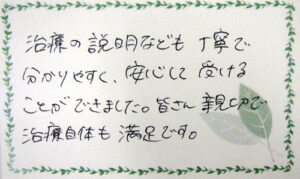 治療の説明なども丁寧で
分かりやすく、安心して受ける
ことができました。皆さん親切で
治療自体も満足です。